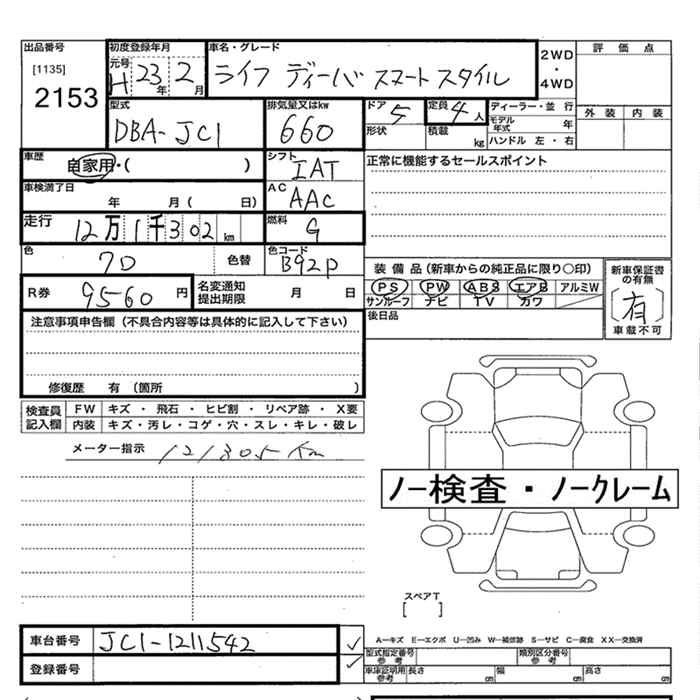 出品番号 初度登録年月 車名・グレード 2WD・4WD 評価点
[1135] 元号 H 23年 2月 ライフ ディーバ スマートスタイル
2153
型式 排気量又はkw ドア 5 定員 4人 ディーラー・並行 外装 内装
DBA-JC1 660 形状 積載 kg モデル年式 年
ハンドル 左・右
車歴 自家用・( ) シフト IAT 正常に機能するセールスポイント
車検満了日 年 月( 日) AC AAC
走行 12万1千302km 燃料 G
色 色替 色コード B92P
装備品(新車からの純正品に限り○印) 新車保証書の有無
PS PW ABS エアB アルミW [有]
サンルーフ ナビ TV カワ 車載不可
R券 9560円 名変通知提出期限 月 日 後日品
注意事項申告欄(不具合内容等は具体的に記入して下さい)
修復歴 有(箇所 )
検査員記入欄 FW キズ・飛石・ヒビ割・リペア跡・X要
内装 キズ・汚レ・コゲ・穴・スレ・キレ・破レ
メーター指示 121305Km
ノー検査・ノークレーム
スペアT
[ ]
車台番号 JC1-1211542
登録番号
A―キズ E―エクボ U―凹み W―補修跡 S―サビ C―腐食 XX―交換済
型式指定番号 参考 類別区分番号 参考
車庫証明用 参考 長さ cm 幅 cm 高さ cm